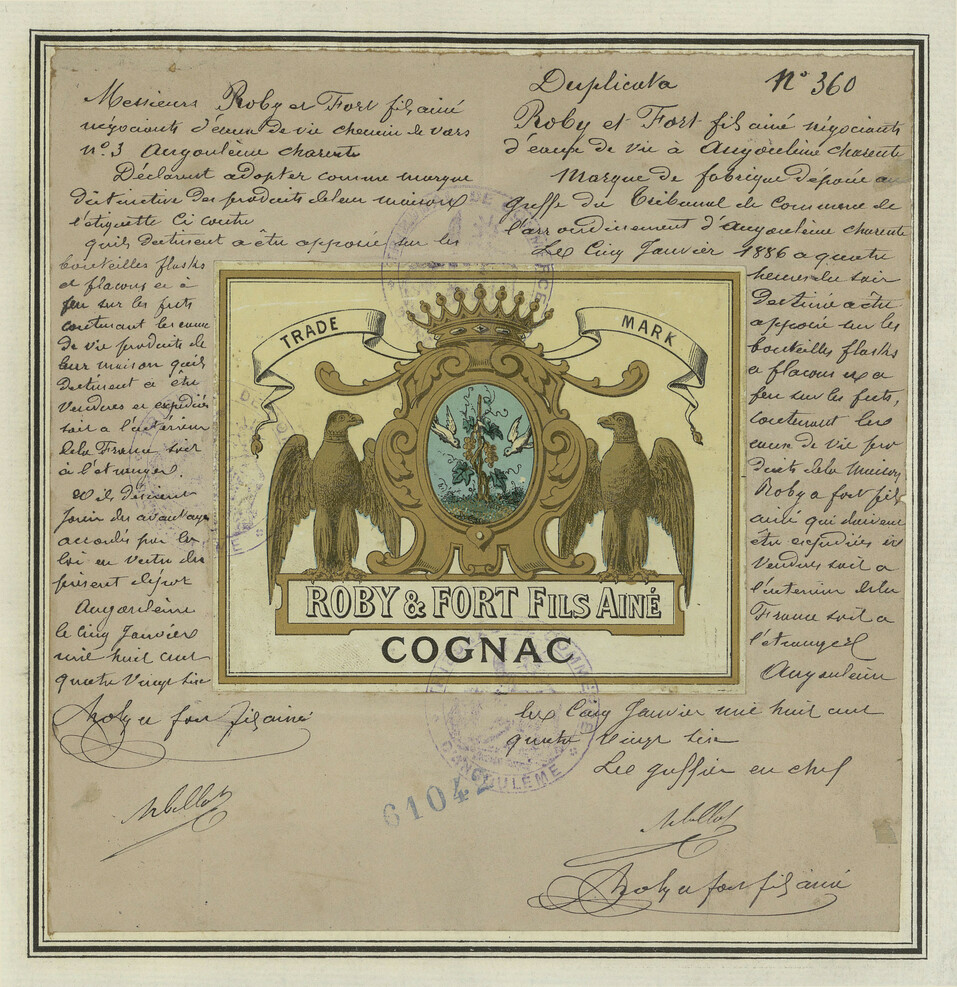 Messieurs Roby et Fort fils ainé
négociants d'eaux de vie chemin de Vars
n°.3 Angoulème charente
Déclarent adopter comme marque
distinctive des produits de leur maison
l'étiquette Ci contre
quils destinent a être apposée sur les
bouteilles flasks
et flacons et à
feu sur les futs
contenant les eaux
de vie produits de
leur maison quils
destinent a être
Vendues et expediés
soit a l'intérieur
de la France soit
à l'étranger
et ils désirent
Jouir des avantages
accordés par la
loi en vertu du
présent depot
Angoulème
le Cinq Janvier
mil huit cent
quatre Vingt six
Roby et fort fils ainé
Duplicata N° 360
Roby et Fort fils ainé négociants
d'eaux de vie à Angoulème charente
Marque de fabrique déposée au
Greffe du Tribunal de Commerce de
l'arrondissement d'Angoulème charente
Le Cinq Janvier 1886 a quatre
heures du soir
Destinée a être
apposée sur les
bouteilles flasks
et flacons et a
feu sur les futs,
contenant les
eaux de vie pro
duits de la maison
Roby et fort fils
ainé qui doivent
être expediées et
Vendues soit a
l'intérieur de la
France soit a
l'étranger
Angoulème
les Cinq Janvier mil huit cent
quatre Vingt six
Le greffier en chef
Roby et fort fils ainé
TRADE MARK
ROBY & FORT FILS AINÉ
COGNAC
TRIBUNAL DE COMMERCE
D'ANGOULÊME
61042